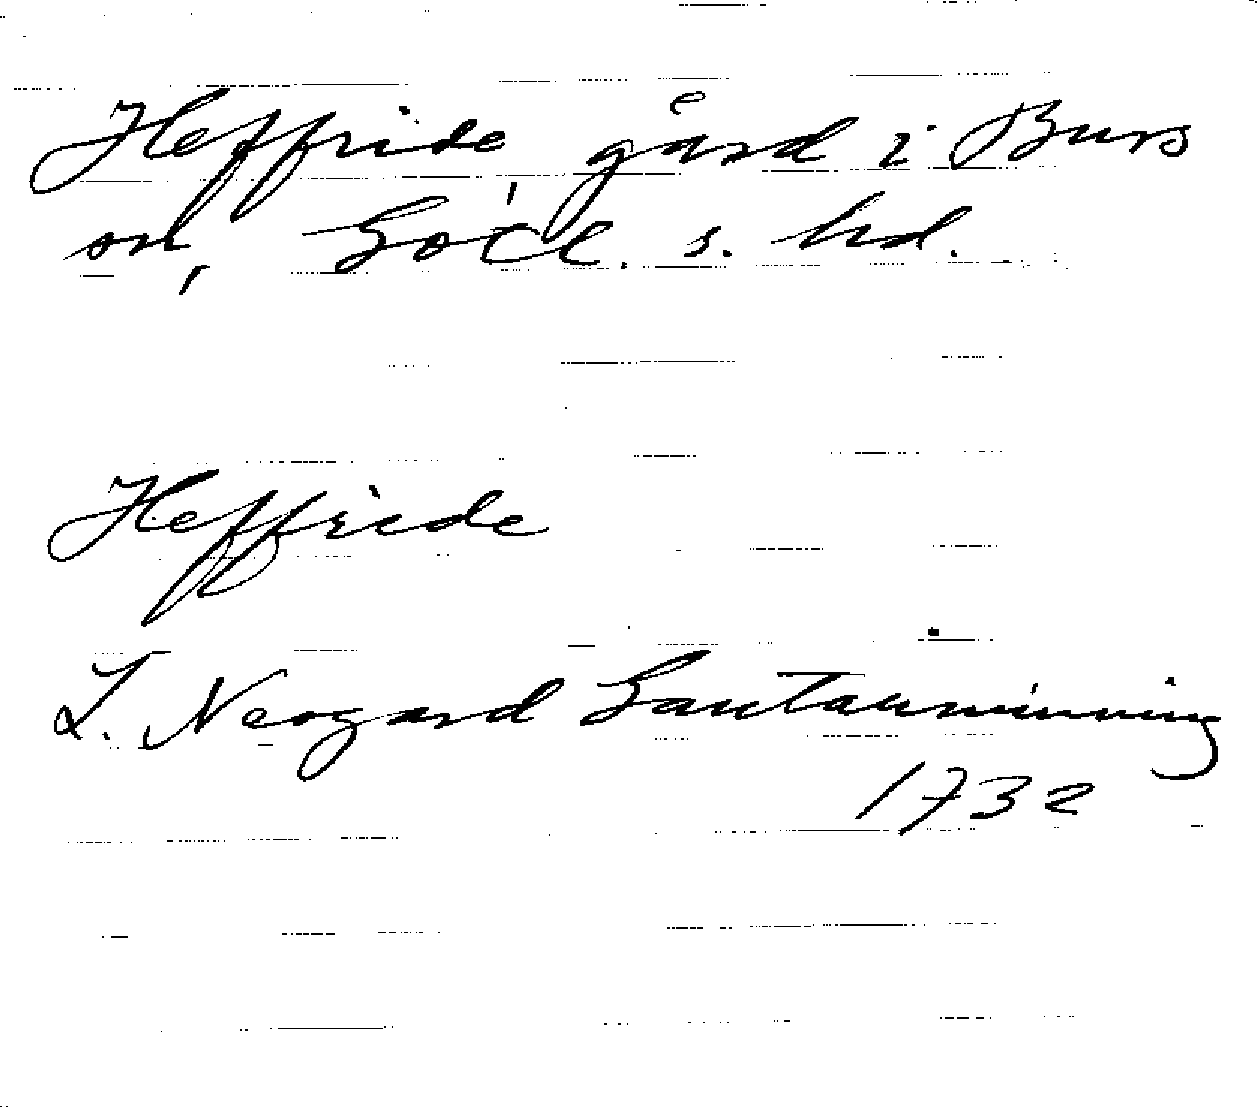 Heffride gård i Burs
sn, Gotl. s. hd.
Heffride
L. Neogard Gautauminning
1732